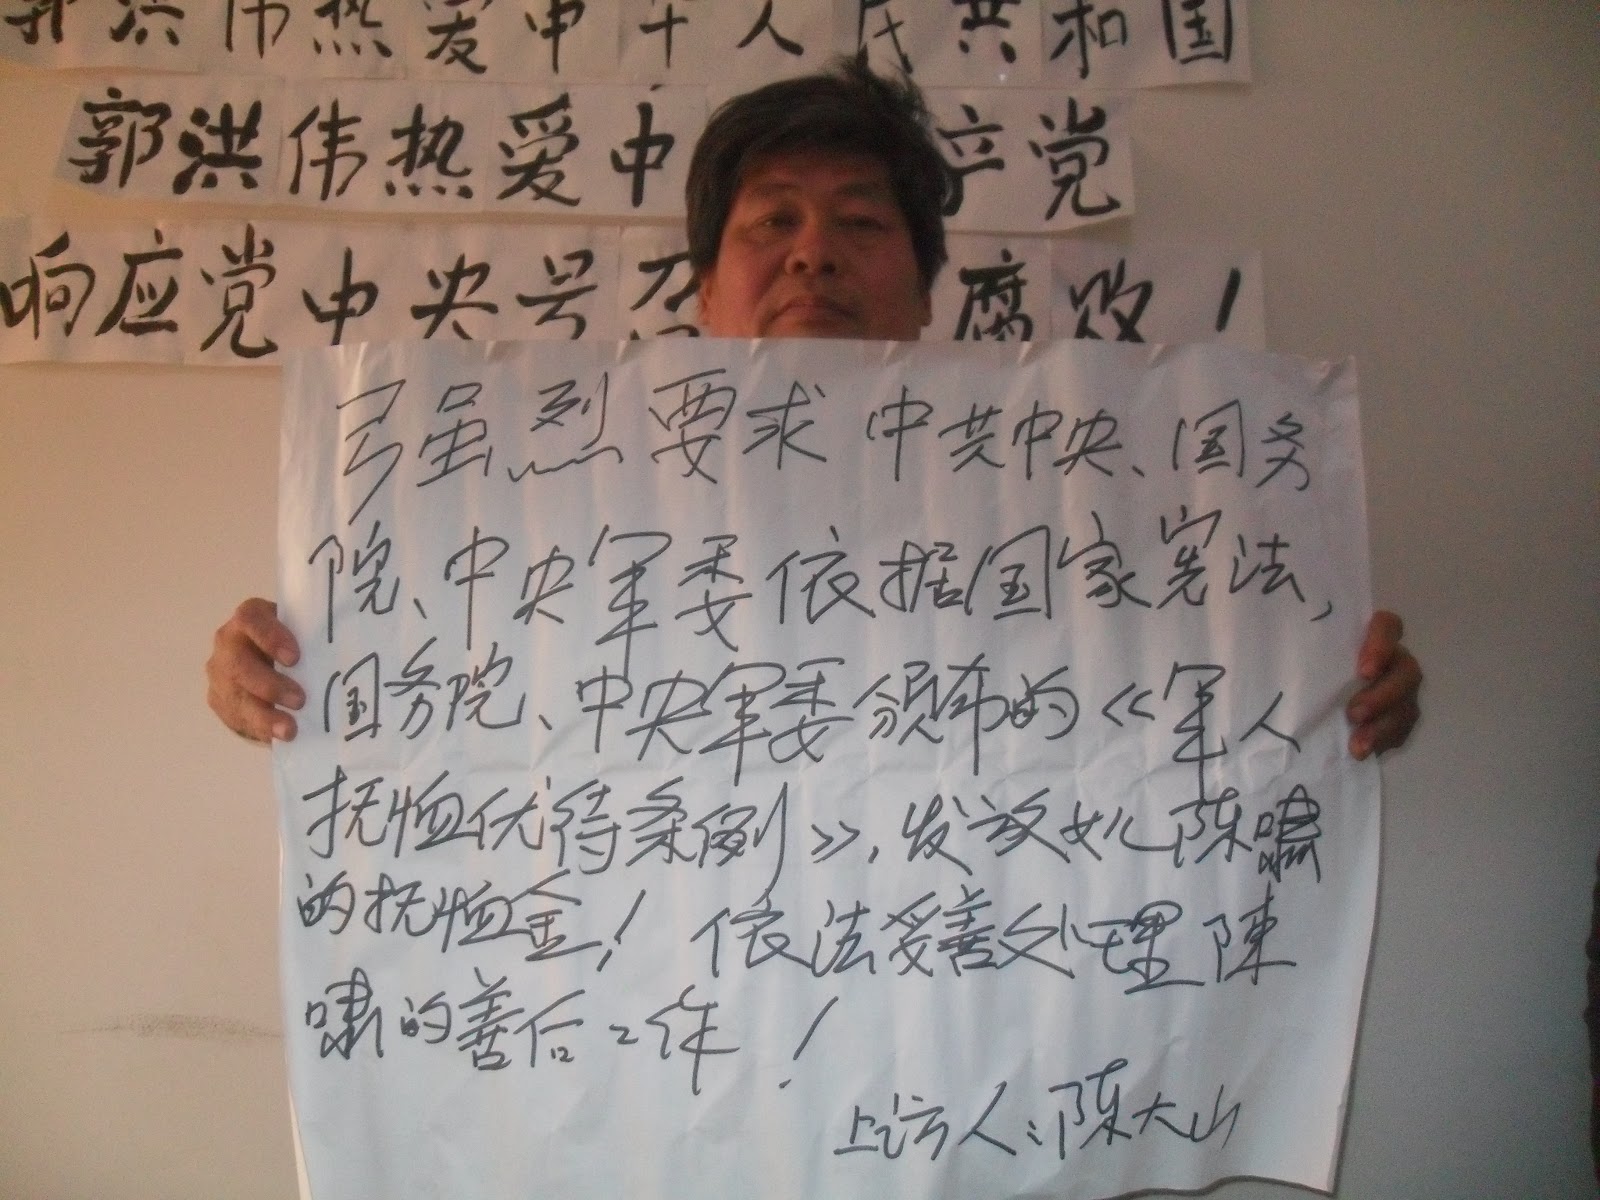 郭洪伟热爱中华人民共和国
郭洪伟热爱中产党
响应党中央号召腐败！
强烈要求中共中央、国务
院、中央军委依据国家宪法，
国务院、中央军委颁布的《军人
抚恤优待条例》，发放女儿陈啸
的抚恤金！依法妥善处理陈
啸的善后工作！
上访人：陈大山